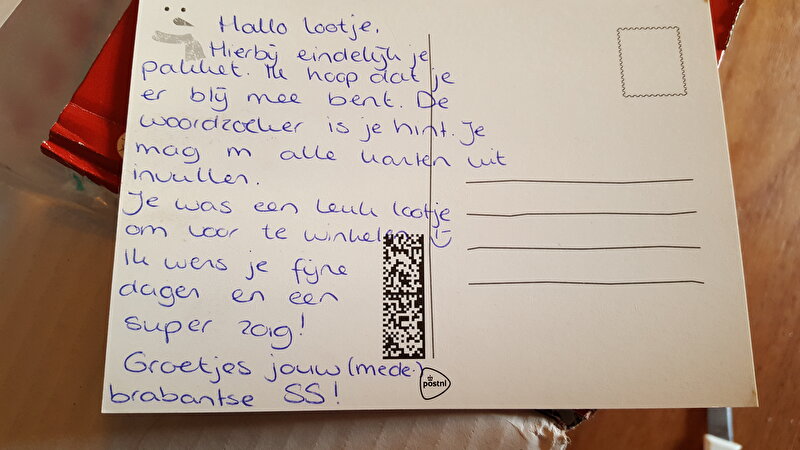 Hallo lootje,
Hierbij eindelijk je
pakket. Ik hoop dat je
er blij mee bent. De
woordzoeker is je hint. Je
mag m alle kanten uit
invullen.
Je was een leuk lootje
om voor te winkelen :-)
Ik wens je fijne
dagen en een
super 2019!
Groetjes jouw (mede-)
brabantse SS!
postnl